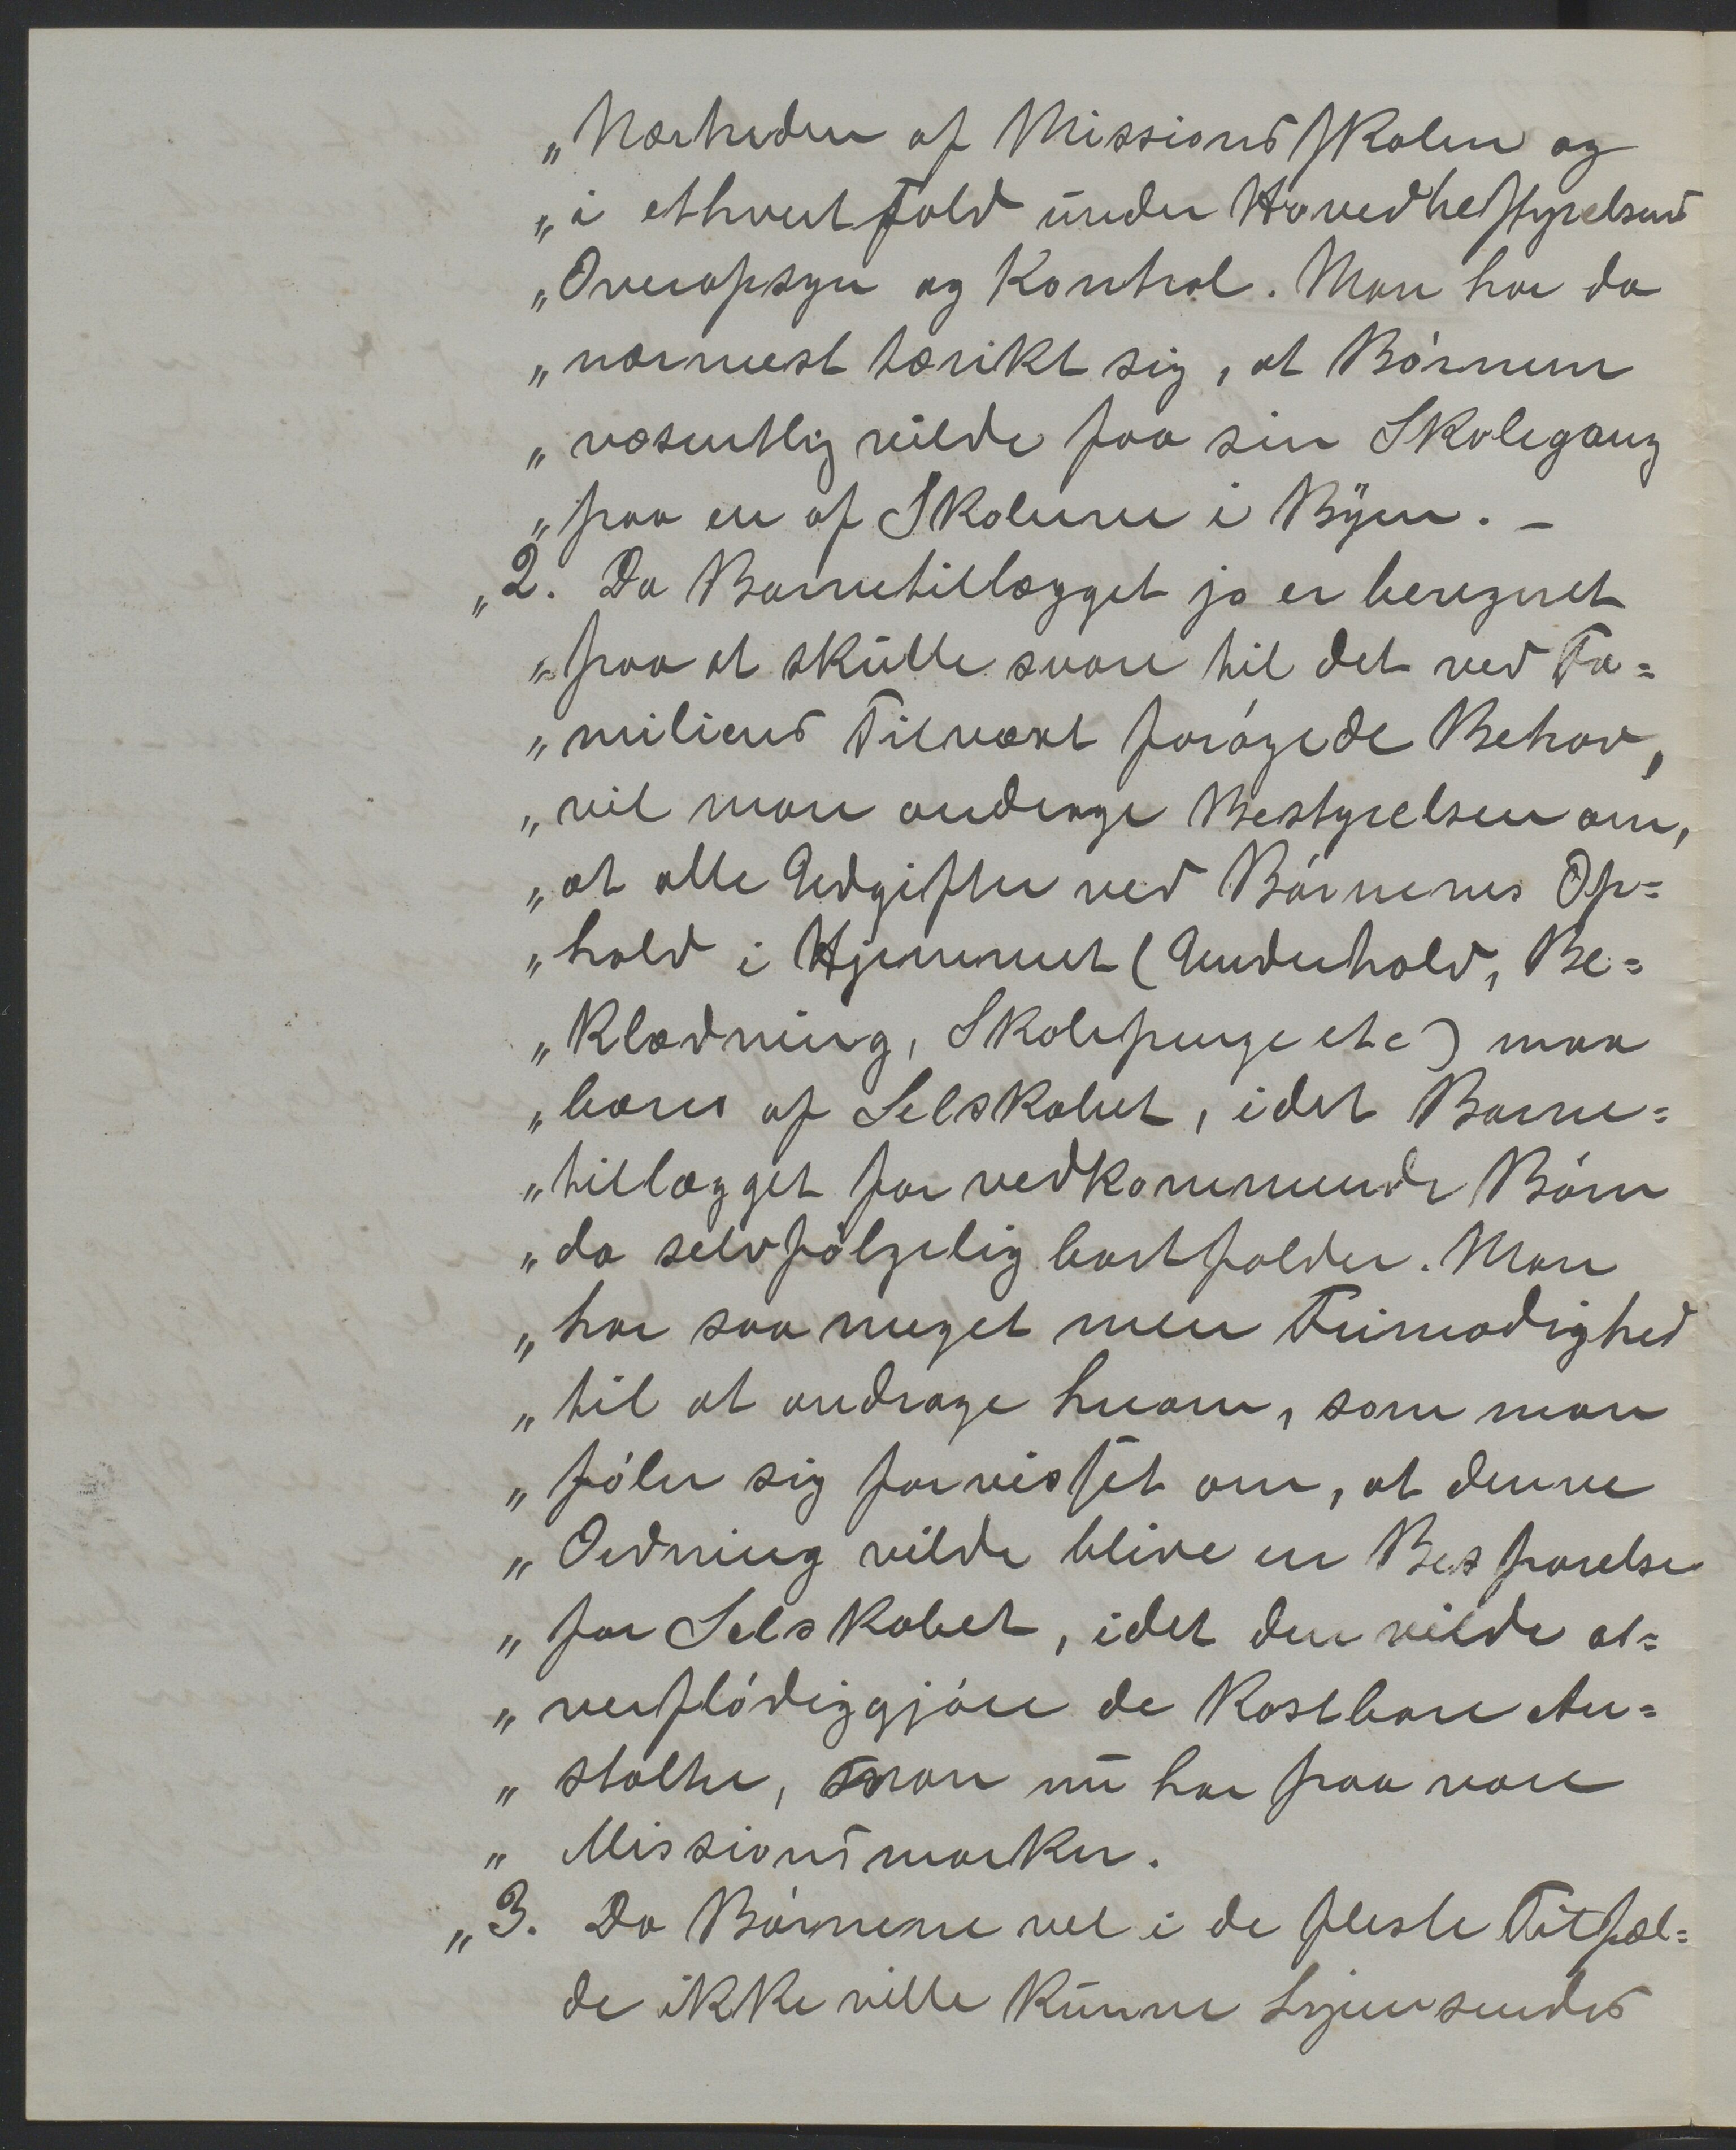 „Nærheden af Missionsskolen og
„i ethvert Fald under Hovedbestyrelsens
„Overopsyn og Kontrol. Man har da
„nærmest tænkt sig, at Börnene
„væsentlig vilde faa sin Skolegang
„paa en af Skolerne i Byen. –
„2. Da Barnetillægget jo er beregnet
„paa at skulle svare til det ved Fa=
„miliens Tilvæxt forögede Behov,
„vil man andrage Bestyrelsen om,
„at alle Udgifter ved Börnenes Op=
„hold i Hjemmet (Underhold, Be=
„klædning, Skolepenge etc) maa
„bæres af Selskabet, idet Barne=
„tillægget for vedkommende Börn
„da selvfölgelig bortfalder. Man
„har saa meget mere Frimodighed
„til at andrage herom, som man
„föler sig forvisset om, at denne
„Ordning vilde blive en Besparelse
„for Selskabet, idet den vilde o=
„verflödiggjöre de kostbare An=
„stalter, man nu har paa vore
„Missionsmarker.
„3. Da Börnene vel i de fleste Tilfæl=
de ikke ville kunne hjemsendes